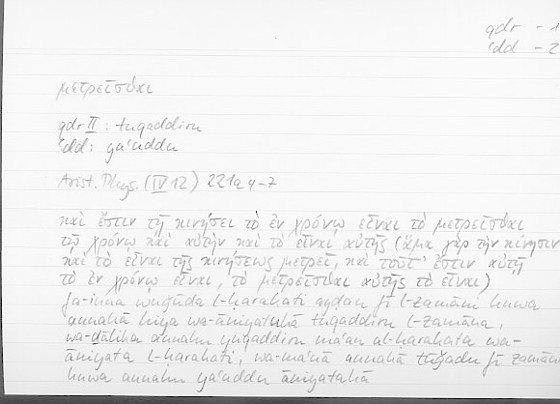 qdr - 1
ʿdd - 2
μετρεῖσθαι
qdr II : tuqaddiru
ʿdd: yaʿuddu
Arist. Phys. (IV 12) 221a 4-7
καὶ ἔστιν τῇ κινήσει τὸ ἐν χρόνῳ εἶναι τὸ μετρεῖσθαι
τῷ χρόνῳ καὶ αὐτὴν καὶ τὸ εἶναι αὐτῆς (ἅμα γὰρ τὴν κίνησιν
καὶ τὸ εἶναι τῆς κινήσεως μετρεῖ, καὶ τοῦτ' ἔστιν αὐτῇ
τὸ ἐν χρόνῳ εἶναι, τὸ μετρεῖσθαι αὐτῆς τὸ εἶναι)
fa-inna wuǧūda l-ḥarakati ayḍan fī l-zamāni huwa
annahā hiya wa-ānīyatuhā tuqaddiru l-zamāna,
wa-ḏālika annahu yuqaddiru maʿan al-ḥarakata wa-
ānīyata l-ḥarakati, wa-maʿnā annahā tūǧadu fī zamānin
huwa annahu yaʿuddu ānīyatahā